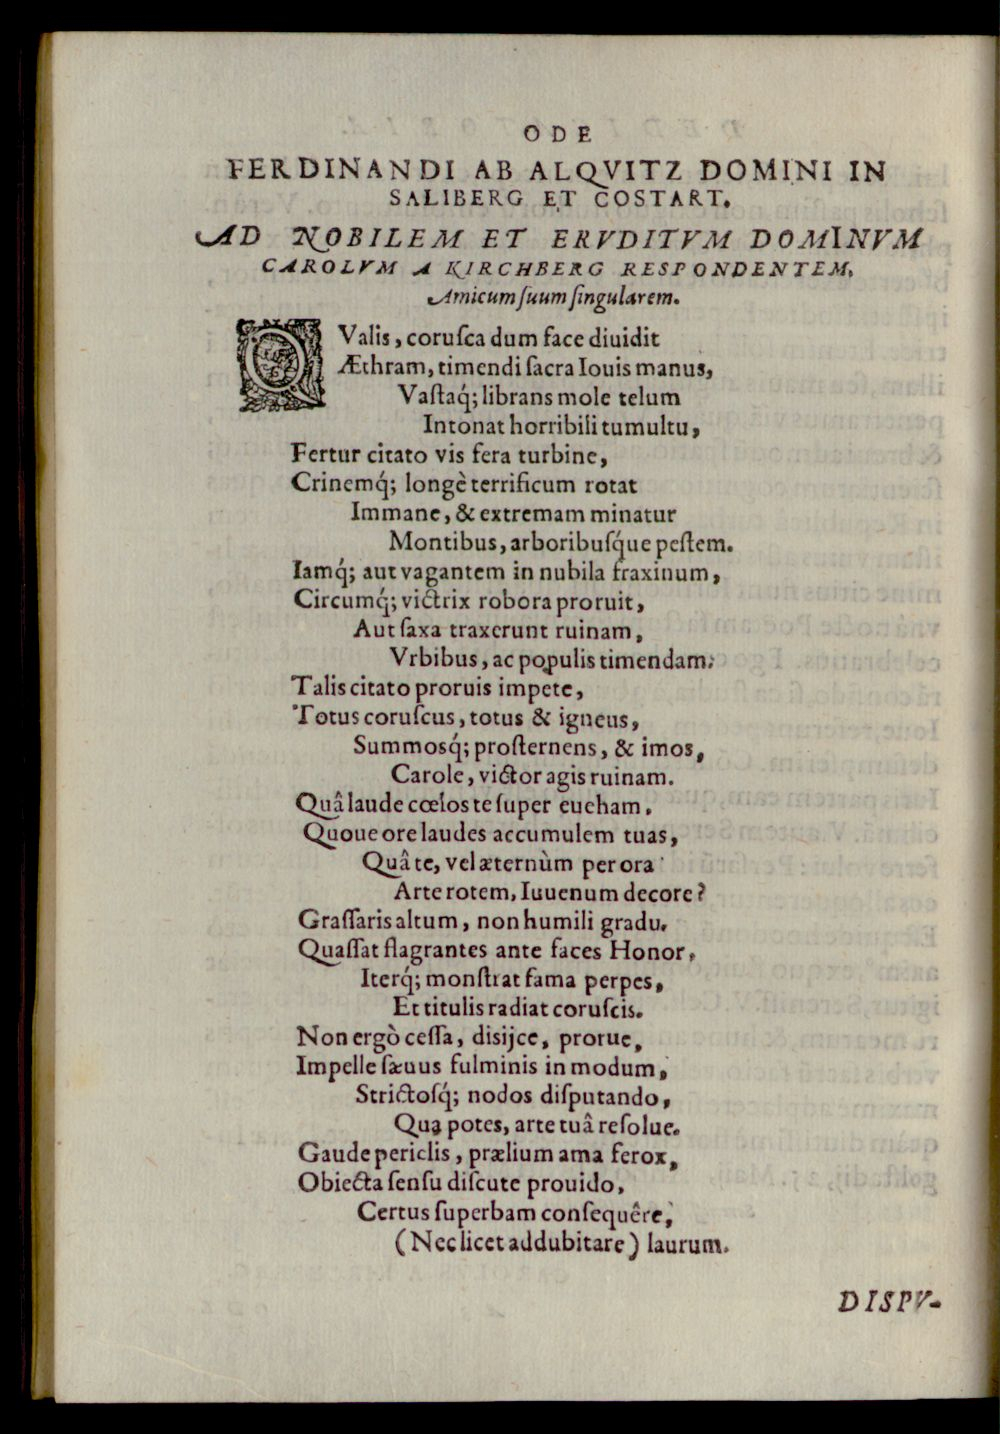 ODE
FERDINANDI AB ALQVITZ DOMINI IN
SALIBERG ET COSTART.
AD NOBILEM ET ERVDITVM DOMINVM
CAROLVM A KIRCHBERG RESPONDENTEM,
Amicum ſuum ſingularem.
QValis, coruſca dum face diuidit
Æthram, timendi ſacra Iouis manus,
Vaſtaq́; librans mole telum
Intonat horribili tumultu,
Fertur citato vis fera turbine,
Crinemq́; longè terrificum rotat
Immane, & extremam minatur
Montibus, arboribuſq́ue peſtem.
Iamq́; aut vagantem in nubila fraxinum,
Circumq́; victrix robora proruit,
Aut ſaxa traxerunt ruinam,
Vrbibus, ac populis timendam.
Talis citato proruis impete,
Totus coruſcus, totus & igneus,
Summosq́; proſternens, & imos,
Carole, victor agis ruinam.
Quâ laude cœlos te ſuper eueham,
Quoue ore laudes accumulem tuas,
Quâ te, vel æternùm per ora
Arte rotem, Iuuenum decore?
Graſſaris altum, non humili gradu,
Quaſſat flagrantes ante faces Honor,
Iterq́; monſtrat fama perpes,
Et titulis radiat coruſcis.
Non ergò ceſſa, disijce, prorue,
Impelle ſæuus fulminis in modum,
Strictoſq́; nodos diſputando,
Qua potes, arte tuâ reſolue.
Gaude periclis, prælium ama ferox,
Obiecta ſenſu diſcute prouido,
Certus ſuperbam conſequêre,
(Nec licet addubitare) laurum.
DISPV-